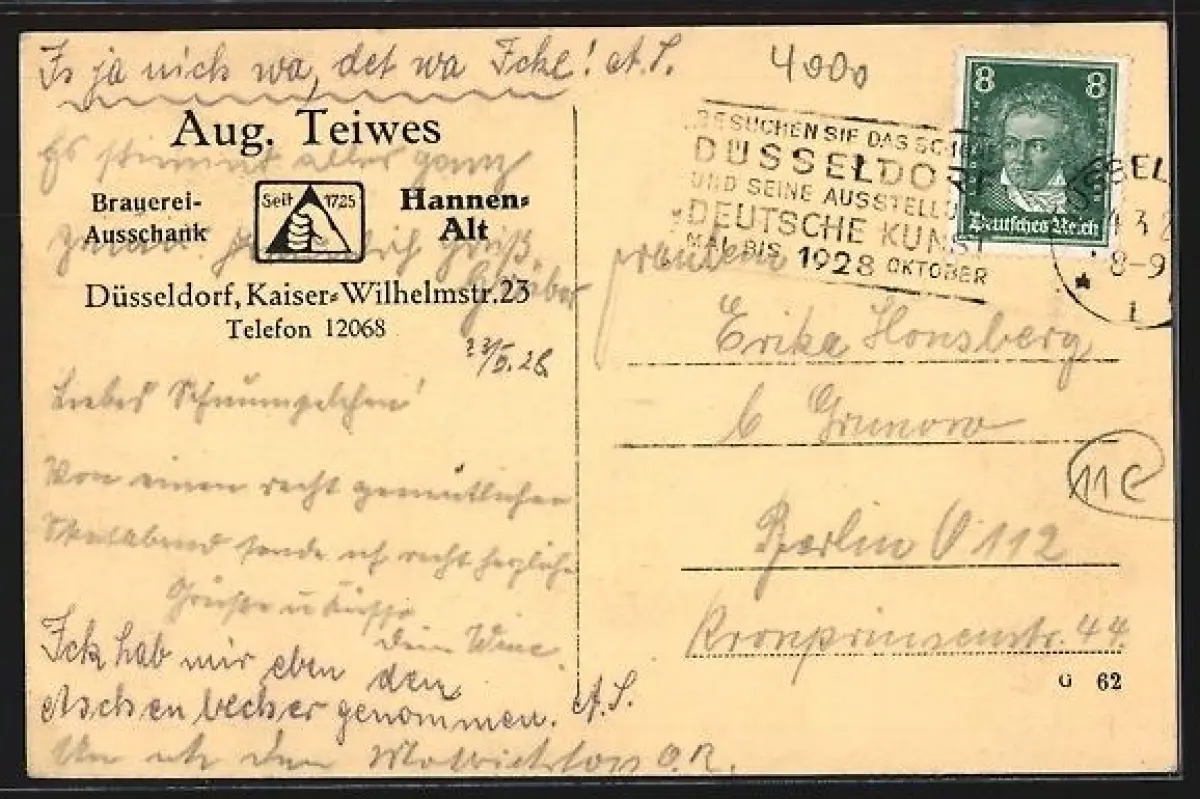 Is ja nich wa, det wa Icke! A.S.
4000
Aug. Teiwes
Es stimmt alles ganz
genau. Herzlich Grüß.
Brauerei-
Ausschank
Seit 1725
Hannen-
Alt
Düsseldorf, Kaiser-Wilhelmstr. 23
Telefon 12068
23/5. 28.
Liebes
Von einem recht gemütlichen
Skatabend sende ich recht herzliche
Grüße u Küsse
Dein
Ick hab mir eben den
Aschenbecher genommen. A.S.
Un ick den O.R.
BESUCHEN SIE DAS SCHÖNE
DÜSSELDORF
UND SEINE AUSSTELLU
DEUTSCHE KUNST
MAI BIS 1928 OKTOBER
8 8
Deutsches Reich
SSEL
8-9
Fräulein
Erika Honsberg
b Grunow
Berlin O 112
11C
Kronprinzenstr. 44.
G 62